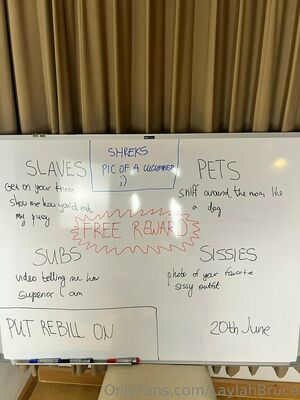 SHREKS
PIC OF A CUCUMBER
;)
SLAVES
Get on your knees
Show me how you'd eat
my pussy
PETS
Sniff around the room like
a dog
FREE REWARD
SUBS
video telling me how
Superior I am
SISSIES
photo of your favorite
sissy outfit
PUT REBILL ON
20th June
OnlyFans.com/LaylahBruce